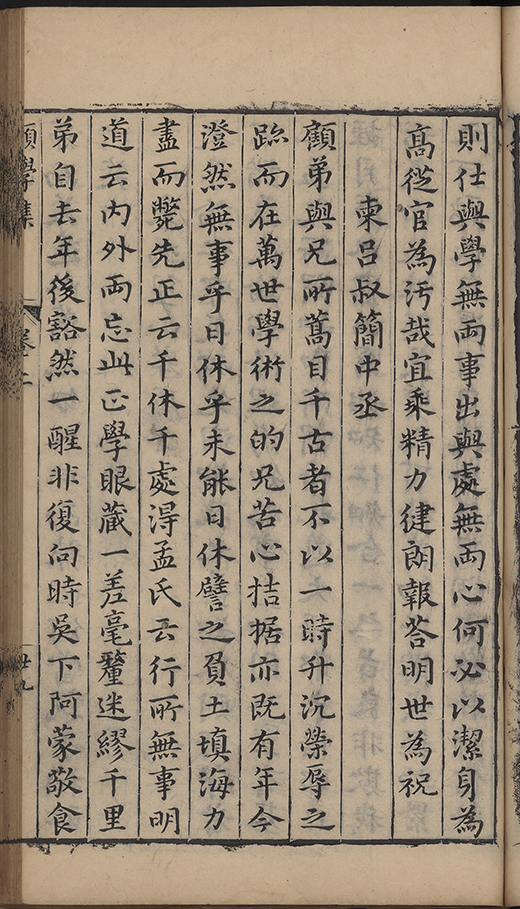 則仕與學無両事出與處無両心何必以潔身為
髙從官為汚哉宜乘精力健朗報荅明世為祝
柬吕叔簡中丞
顧弟與兄所蒿目千古者不以一時升沉榮辱之
跡而在萬世學術之的兄苦心拮据亦既有年今
澄然無事乎日休乎未能日休譬之負土填海力
盡而斃先正云千休千處淂孟氏云行所無事明
道云内外両忘此正學眼藏一差毫釐迷繆千里
弟自去年後豁然一醒非復向時吳下阿蒙敬食
願學集
卷二
廿九